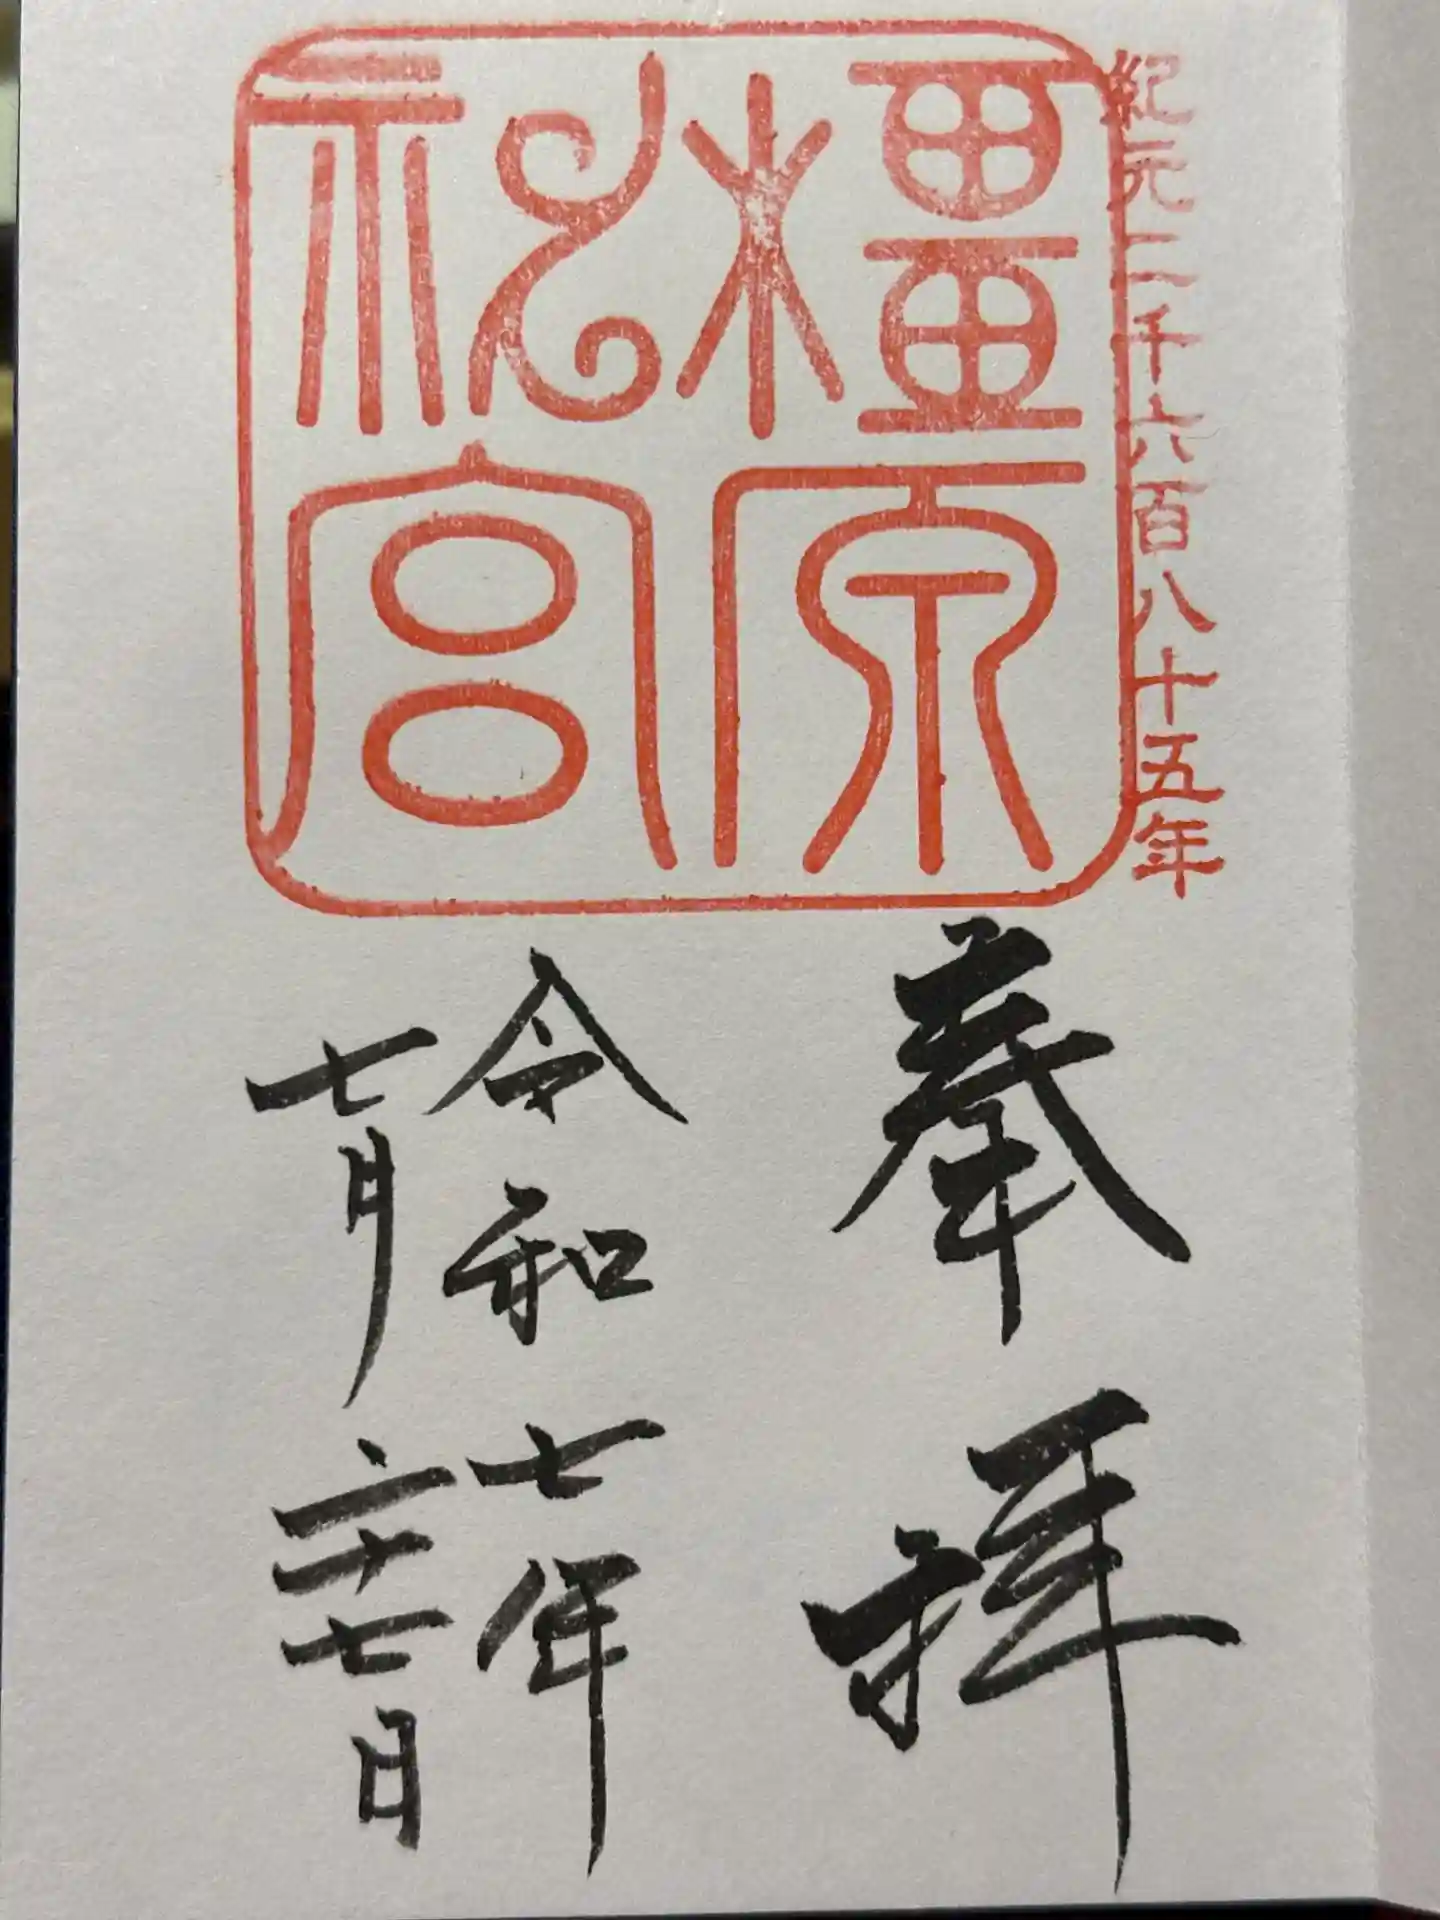 紀元二千六百八十五年
橿原
神宮
奉拝
令和七年
七月二十七日